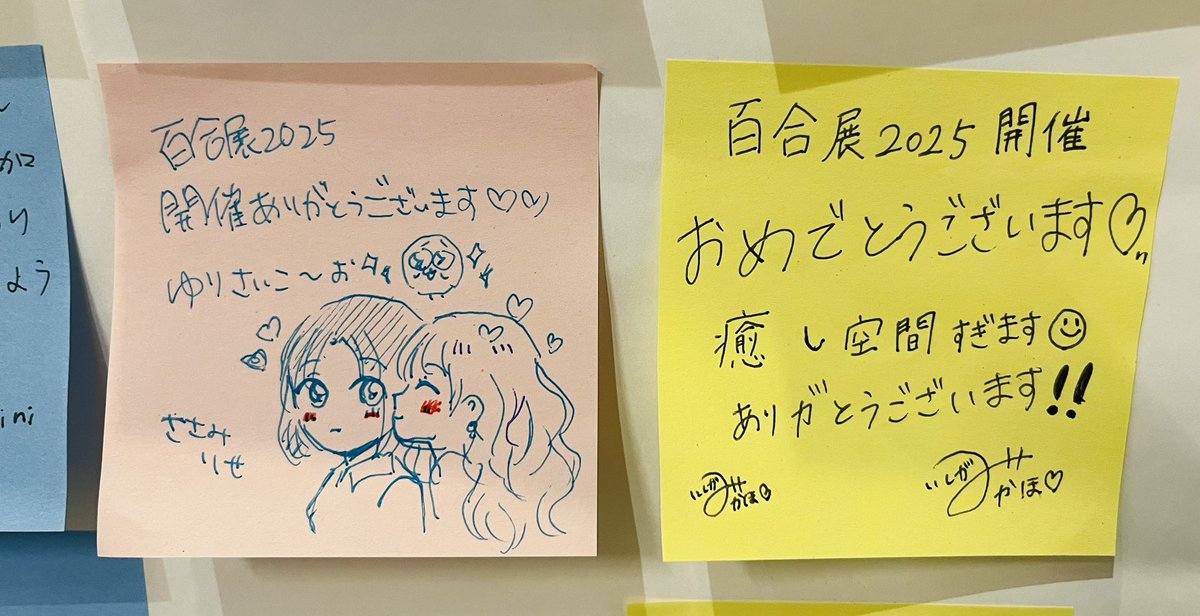 かに
り
よう
ini
百合展2025
開催ありがとうございます♡♡
ゆりさいこ〜お
ささみ
りせ
百合展2025 開催
おめでとうございます♡
癒し空間すぎます☺
ありがとうございます!!
いしがみ
かほ♡
いしがみ
かほ♡